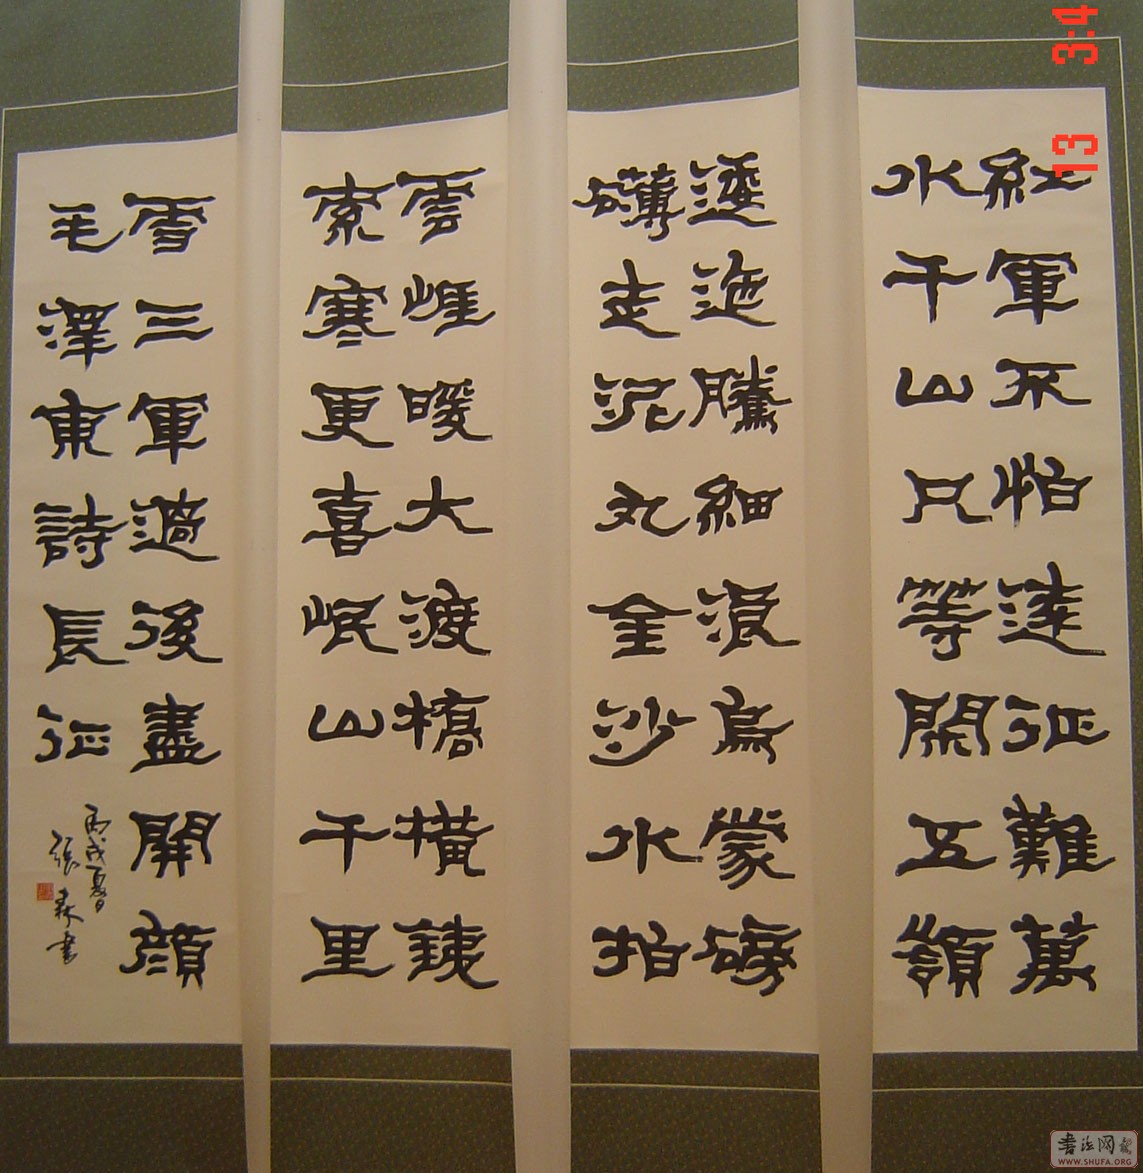 紅軍不怕遠征難萬
水千山只等閑五嶺
逶迤騰細浪烏蒙磅
礴走泥丸金沙水拍
雲崕暖大渡橋橫銕
索寒更喜岷山千里
雪三軍過後盡開顏
毛澤東詩長征
丙戌夏日
張森書
13 3:4
书法网
WWW.SHUFA.ORG